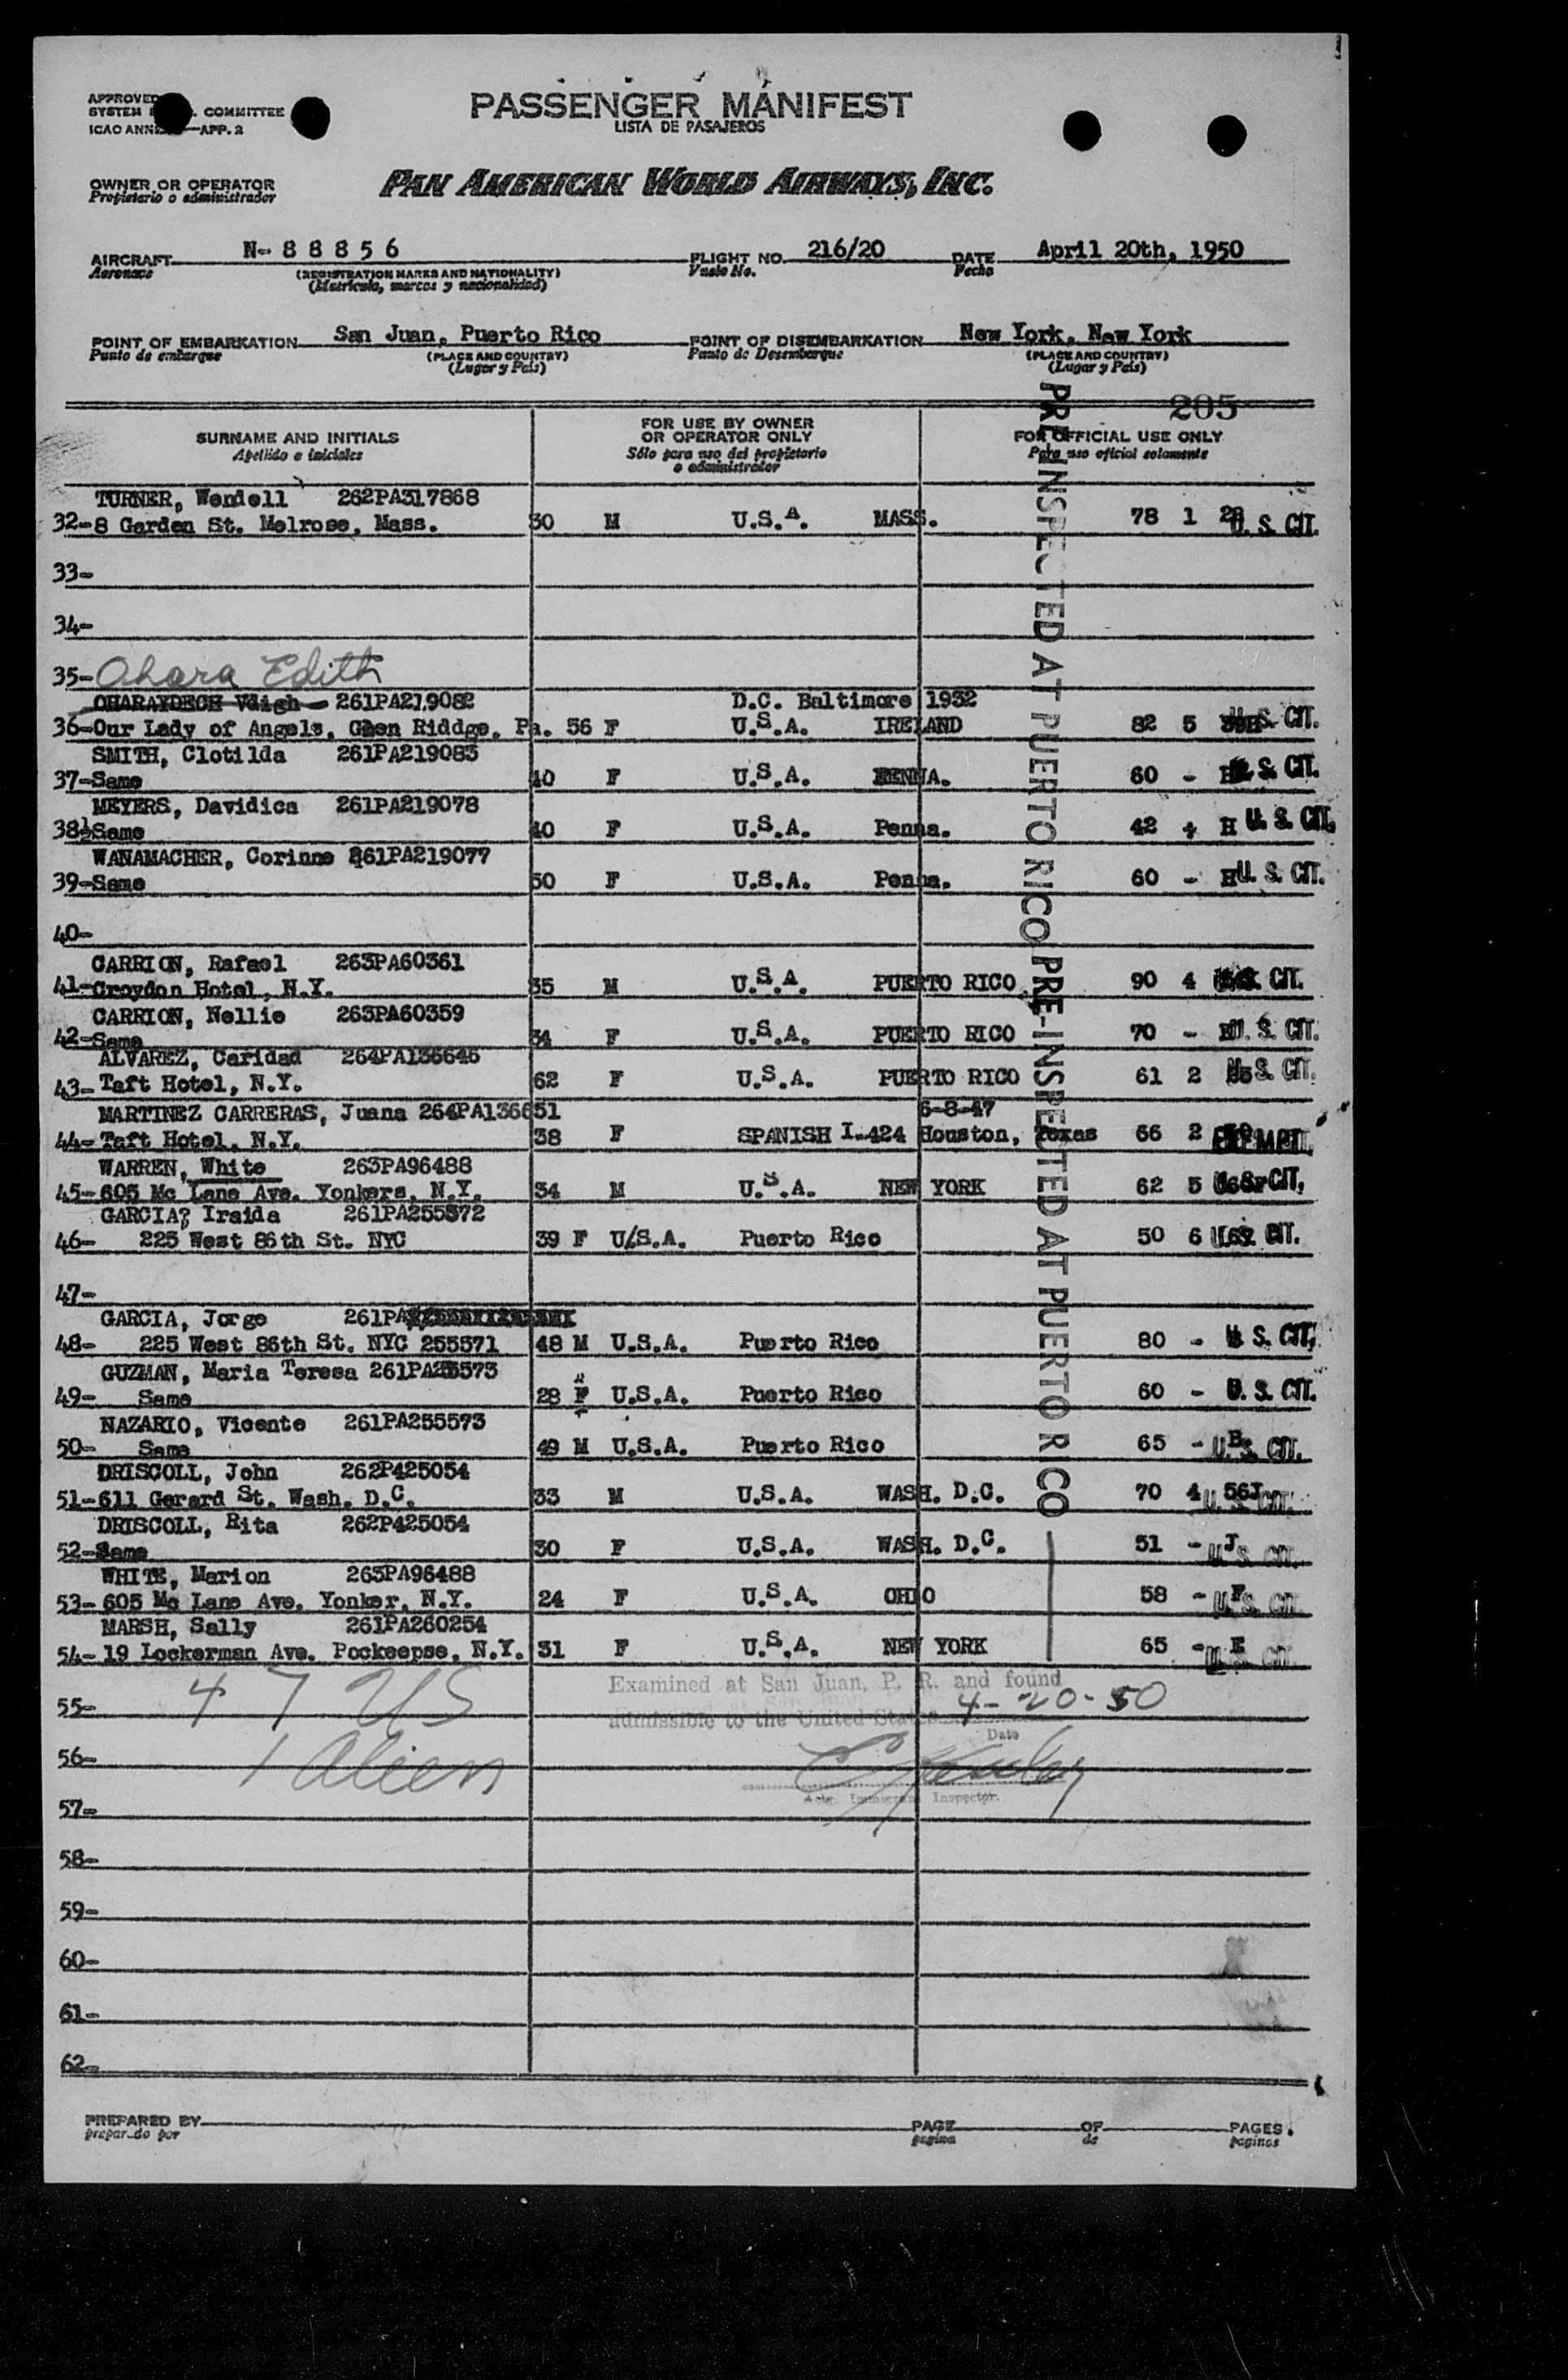 APPROVED
SYSTEM COMMITTEE
ICAO APP. 2
PASSENGER MANIFEST
LISTA DE PASAJEROS
OWNER OR OPERATOR
Propietario o administrador
PAN AMERICAN WORLD AIRWAYS, INC.
AIRCRAFT N-88856 FLIGHT NO. 216/20 DATE April 20th, 1950
Aeronave (REGISTRATION MARKS AND NATIONALITY) Vuelo No. Fecha
(Matrícula, marcas y nacionalidad)
POINT OF EMBARKATION San Juan, Puerto Rico POINT OF DISEMBARKATION New York, New York
Punto de embarque (PLACE AND COUNTRY) Punto de Desembarque (PLACE AND COUNTRY)
(Lugar y País) (Lugar y País)
205
SURNAME AND INITIALS FOR USE BY OWNER OR OPERATOR ONLY FOR OFFICIAL USE ONLY
Apellido e iniciales Sólo para uso del propietario o administrador Para uso oficial solamente
PRE-INSPECTED AT PUERTO RICO
PRE-INSPECTED AT PUERTO RICO
TURNER, Wendell 262PA317868
32-8 Garden St. Melrose, Mass. 30 M U.S.A. MASS. 78 1 U. S. CIT.
33-
34-
35- Ohara Edith
261PA219082 D.C. Baltimore 1932
36-Our Lady of Angels, Glen Riddge, Pa. 56 F U.S.A. IRELAND 82 5 U. S. CIT.
SMITH, Clotilda 261PA219083
37-Same 40 F U.S.A. PENNA. 60 - U. S. CIT.
MEYERS, Davidica 261PA219078
38-Same 40 F U.S.A. Penna. 42 + H U. S. CIT.
WANAMACHER, Corinne 261PA219077
39-Same 50 F U.S.A. Penna. 60 - H U. S. CIT.
40-
CARRION, Rafael 263PA60361
41-Croydon Hotel, N.Y. 35 M U.S.A. PUERTO RICO 90 4 U. S. CIT.
CARRION, Nellie 263PA60359
42-Same 34 F U.S.A. PUERTO RICO 70 - U. S. CIT.
ALVAREZ, Caridad 264PA136646
43- Taft Hotel, N.Y. 62 F U.S.A. PUERTO RICO 61 2 U. S. CIT.
MARTINEZ CARRERAS, Juana 264PA136651 6-8-47
44- Taft Hotel, N.Y. 38 F SPANISH I-424 Houston, Texas 66 2 EXEMPT.
WARREN, White 263PA96488
45-605 Mc Lane Ave. Yonkers, N.Y. 34 M U.S.A. NEW YORK 62 5 U. S. CIT.
GARCIA? Iraida 261PA255572
46- 225 West 86th St. NYC 39 F U/S.A. Puerto Rico 50 6 U. S. CIT.
47-
GARCIA, Jorge 261PA
48- 225 West 86th St. NYC 255571 48 M U.S.A. Puerto Rico 80 - U. S. CIT.
GUZMAN, Maria Teresa
49- Same 28 F U.S.A. Puerto Rico 60 - U. S. CIT.
NAZARIO, Vicente 261PA255573
50- Same 49 M U.S.A. Puerto Rico 65 - U. S. CIT.
DRISCOLL, John 262P425054
51-611 Gerard St. Wash. D.C. 33 M U.S.A. WASH. D.C. 70 4 56J U. S. CIT.
DRISCOLL, Rita 262P425054
52-Same 30 F U.S.A. WASH. D.C. 51 - J U. S. CIT.
WHITE, Marion 263PA96488
53- 605 Mc Lane Ave. Yonker, N.Y. 24 F U.S.A. OHIO 58 - U. S. CIT.
MARSH, Sally 261PA260254
54- 19 Lockerman Ave. Pockeepse, N.Y. 31 F U.S.A. NEW YORK 65 - U. S. CIT.
Examined at San Juan, P. R. and found
55- 47 US admissible to the United States 4-20-50
Date
56- 1 Alien
57- Actg. Immigrant Inspector.
58-
59-
60-
61-
62-
PREPARED BY PAGE OF PAGES
preparado por pagina de paginas